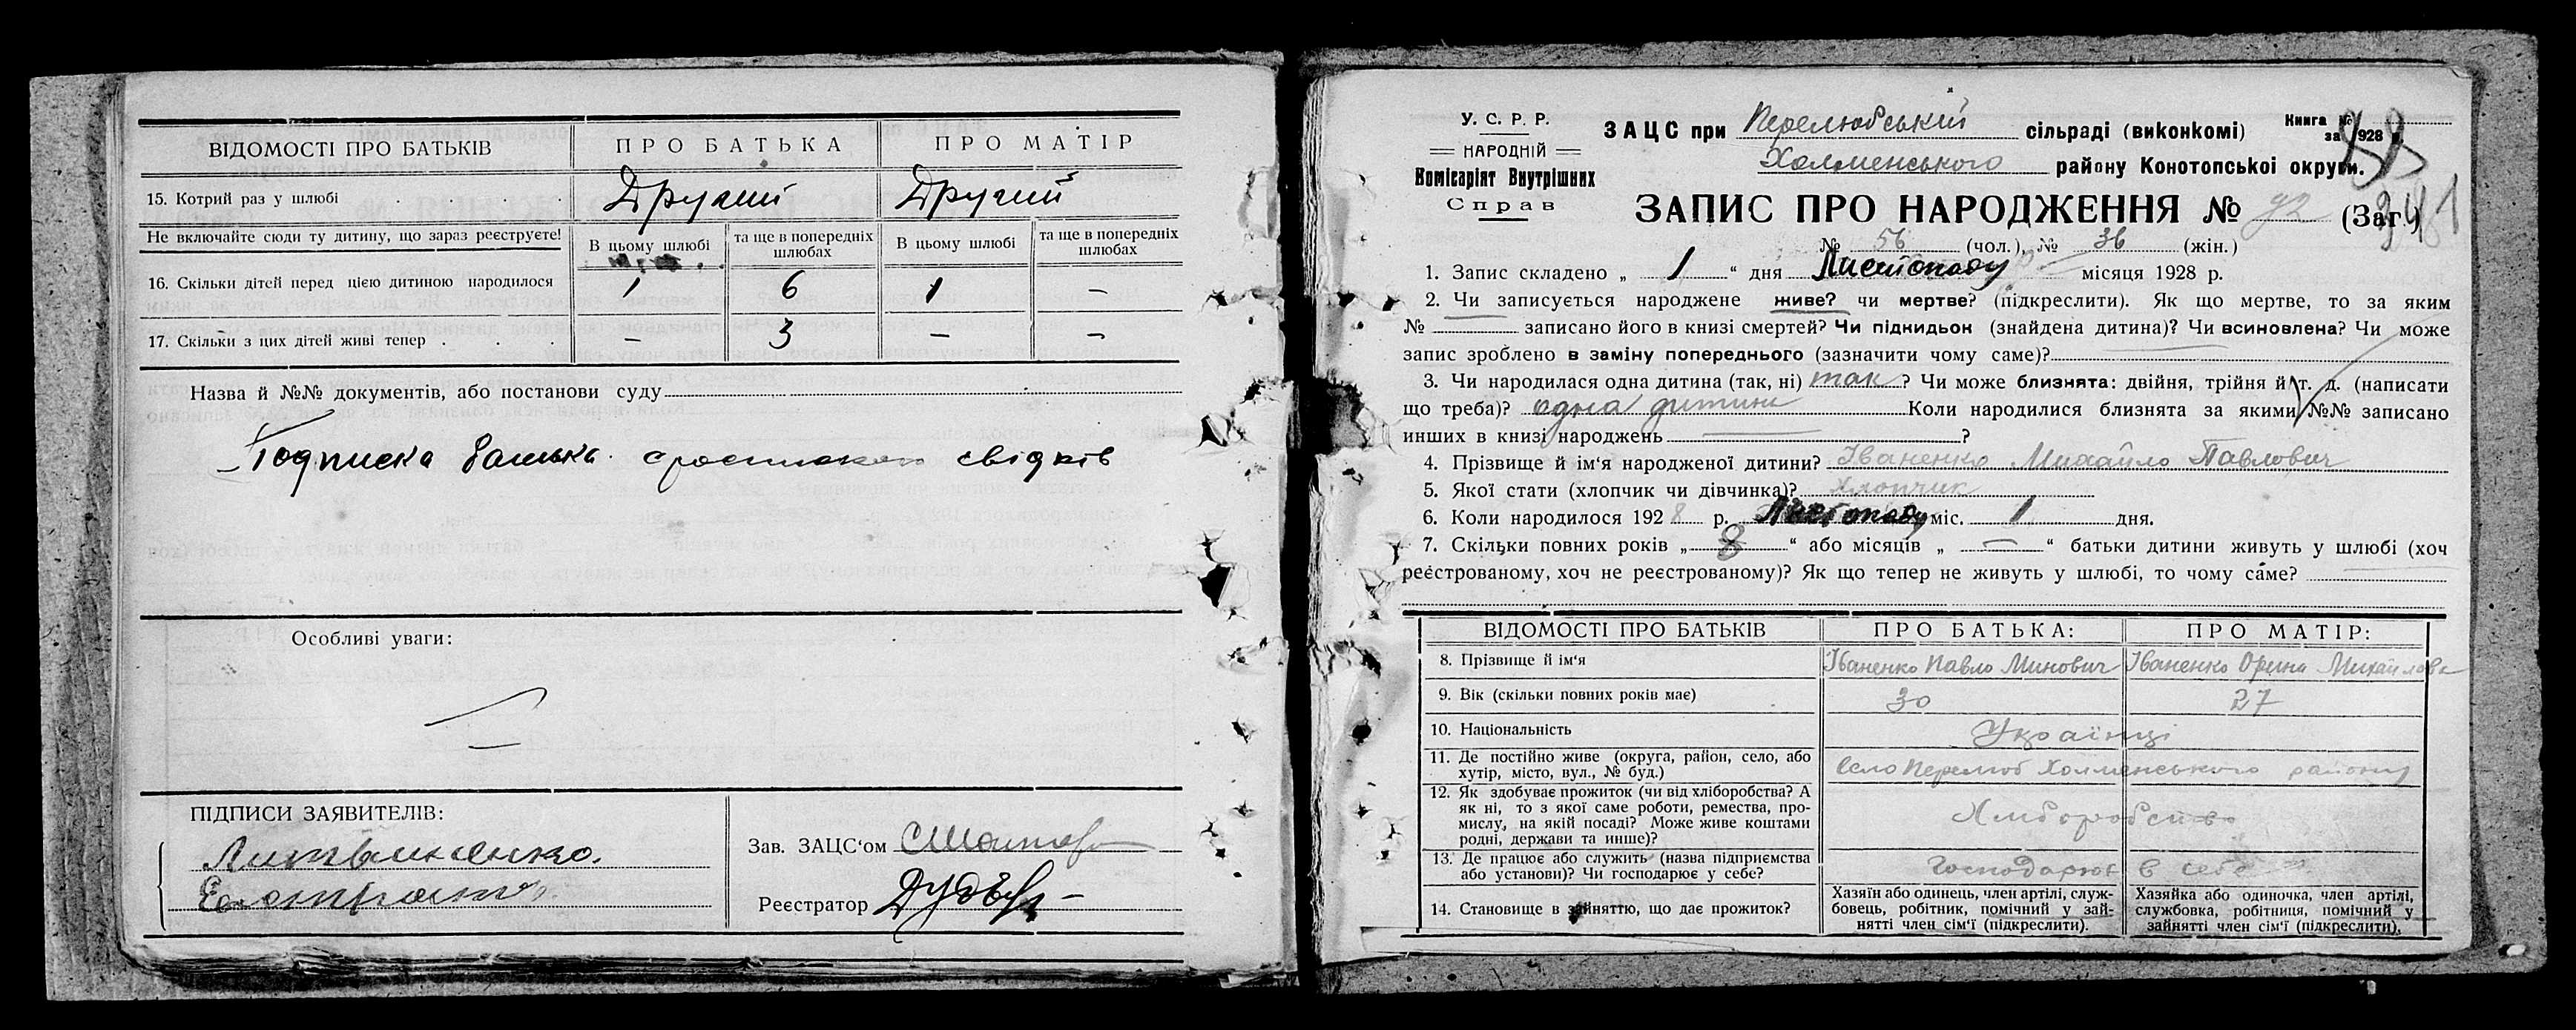 ВІДОМОСТІ ПРО БАТЬКІВ ПРО БАТЬКА ПРО МАТІР
15. Котрий раз у шлюбі . . . . Другий Другий
Не включайте сюди ту дитину, що зараз реєструєте! В цьому шлюбі та ще в попередніх шлюбах В цьому шлюбі та ще в попередніх шлюбах
16. Скільки дітей перед цією дитиною народилося 1 6 1 –
17. Скільки з цих дітей живі тепер . . . – 3 – –
Назва й №№ документів, або постанови суду
Подписка батька свідків
Особливі уваги:
ПІДПИСИ ЗАЯВИТЕЛІВ:
Литвиненко
Зав. ЗАЦС‘ом
Реєстратор
У. С. Р. Р.
НАРОДНІЙ
Комісаріят Внутрішних
Справ
ЗАЦС при Перелюбський сільраді (виконкомі)
Книга №
за 1928 р.
Холменського району Конотопської округи.
ЗАПИС ПРО НАРОДЖЕННЯ № 92 (Заг.)
№ 56 (чол.), № 36 (жін.)
1. Запис складено „ 1 “ дня Листопаду місяця 1928 р.
2. Чи записується народжене живе? чи мертве? (підкреслити). Як що мертве, то за яким
№ записано його в книзі смертей? Чи підкидьок (знайдена дитина)? Чи всиновлена? Чи може
запис зроблено в заміну попереднього (зазначити чому саме)?
3. Чи народилася одна дитина (так, ні) так? Чи може близнята: двійня, трійня й т. д. (написати
що треба)? одна дитина Коли народилися близнята за якими №№ записано
инших в книзі народжень ?
4. Прізвище й ім‘я народженої дитини? Іваненко Михайло Павлович
5. Якої стати (хлопчик чи дівчинка)? хлопчик
6. Коли народилося 1928 р. Листопаду міс. 1 дня.
7. Скільки повних років „ 8 “ або місяців „ — “ батьки дитини живуть у шлюбі (хоч
реєстрованому, хоч не реєстрованому)? Як що тепер не живуть у шлюбі, то чому саме?
ВІДОМОСТІ ПРО БАТЬКІВ ПРО БАТЬКА: ПРО МАТІР:
8. Прізвище й ім‘я Іваненко Павло Минович Іваненко Орина Михайлова
9. Вік (скільки повних років має) 30 27
10. Національність Українці
11. Де постійно живе (округа, район, село, або
хутір, місто, вул., № буд.) Село Перелюб Холменського району
12. Як здобуває прожиток (чи від хліборобства? А
як ні, то з якої саме роботи, ремества, про-
мислу, на якій посаді? Може живе коштами
родні, держави та инше)? Хліборобство
13. Де працює або служить (назва підприємства
або установи)? Чи господарює у себе? Господарює в себе
14. Становище в зайняттю, що дає прожиток?
Хазяїн або одинець, член артілі, служ-
бовець, робітник, помічний у зай-
нятті член сім‘ї (підкреслити).
Хазяйка або одиночка, член артілі,
службовка, робітниця, помічний у
зайнятті член сім‘ї (підкреслити).